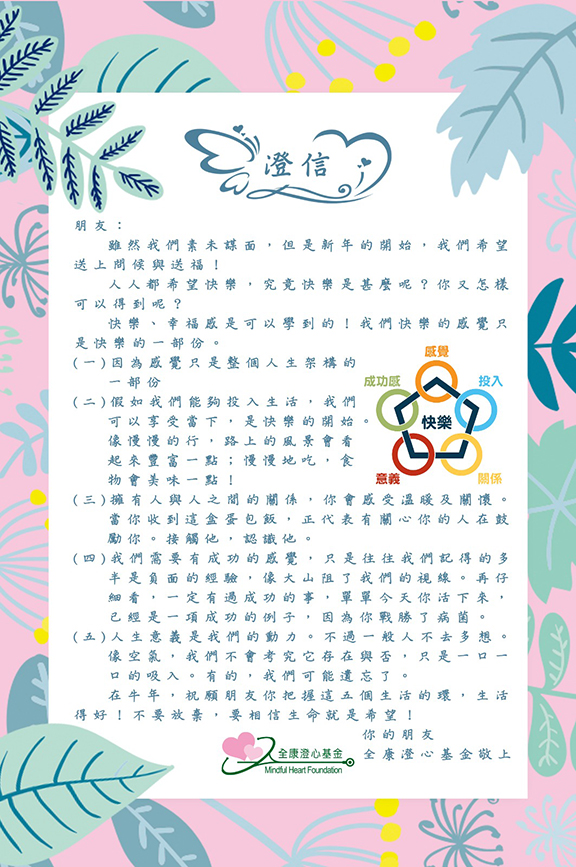 澄信
朋友：
雖然我們素未謀面，但是新年的開始，我們希望
送上問候與送福！
人人都希望快樂，究竟快樂是甚麼呢？你又怎樣
可以得到呢？
快樂、幸福感是可以學到的！我們快樂的感覺只
是快樂的一部份。
(一)因為感覺只是整個人生架構的
一部份
(二)假如我們能夠投入生活，我們
可以享受當下，是快樂的開始。
像慢慢的行，路上的風景會看
起來豐富一點；慢慢地吃，食
物會美味一點！
感覺
成功感
投入
快樂
意義
關係
(三)擁有人與人之間的關係，你會感受溫暖及關懷。
當你收到這盒蛋包飯，正代表有關心你的人在鼓
勵你。接觸他，認識他。
(四)我們需要有成功的感覺，只是往往我們記得的多
半是負面的經驗，像大山阻了我們的視線。再仔
細看，一定有過成功的事，單單今天你活下來，
已經是一項成功的例子，因為你戰勝了病菌。
(五)人生意義是我們的動力。不過一般人不去多想。
像空氣，我們不會考究它存在與否，只是一口一
口的吸入。有的，我們可能遺忘了。
在牛年，祝願朋友你把握這五個生活的環，生活
得好！不要放棄，要相信生命就是希望！
你的朋友
全康澄心基金敬上
全康澄心基金
Mindful Heart Foundation